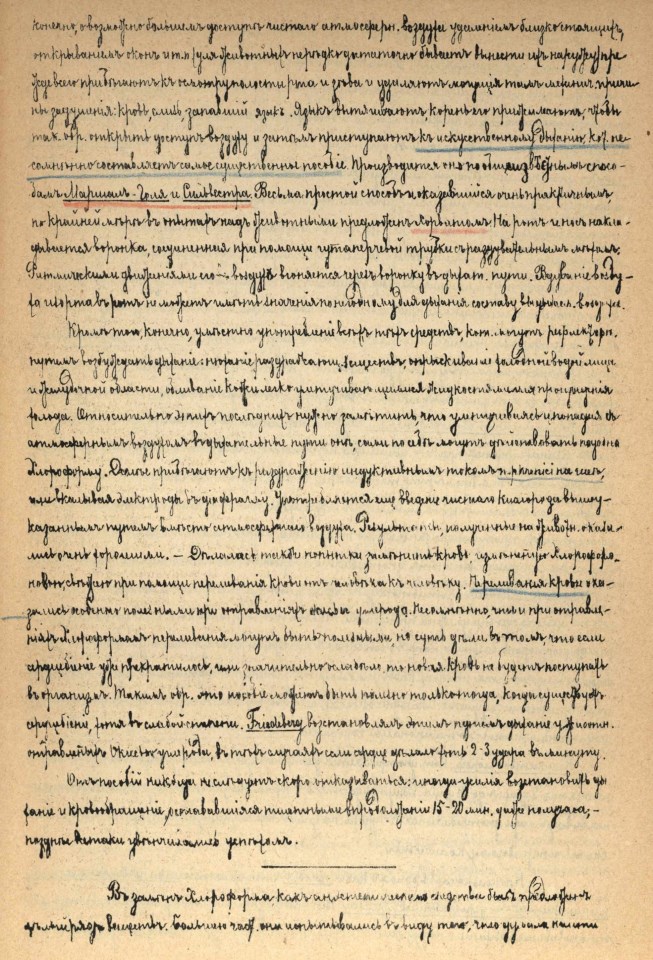 конечно, о возможно большемъ доступѣ чистаго атмосферн. воздуха удаленіемъ близко стоящихъ,
открываніемъ оконъ и т.п. (для животныхъ нерѣдко достаточно бываетъ вынести ихъ наружу) пре
жде всего прибѣгаютъ къ осмотру полости рта и зѣва и удаляютъ могущія тамъ механич. причи-
ны задушенія: кровь, слизь, запавшій языкъ. Языкъ вытягиваютъ, корень его прижимаютъ, чтобы
так. обр. открыть доступъ воздуху и затѣмъ приступаютъ къ искусственному дыханію, кот. не
сомнѣнно составляетъ самое существенное пособіе. Производится оно по общеизвѣстнымъ спосо-
бамъ Маршалъ-Голя и Сильвестра. Весьма простой способъ и оказавшійся очень практичнымъ,
по крайней мѣрѣ въ опытахъ надъ животными предложенъ На ротъ и носъ накла-
дывается воронка, соединенная при помощи гутаперчевой трубки съ раздувательнымъ мѣхомъ,
Ритмическими движеніями его воздухъ вгоняется черезъ воронку въ дыхат. пути. Вдуваніе возду-
ха изо рта въ ротъ не можетъ имѣть значенія по негодному для дыханія составу выдыхаем. воздуха.
Кромѣ того, конечно, умѣстно употребленіе всѣхъ тѣхъ средствъ, кот. могутъ рефлектор.
путемъ возбуждать дыханіе: нюханіе раздражающ. веществъ, опрыскиваніе холодной водой лица
и желудочной области, обливаніе кожи легко улетучивающимися жидкостями для произведенія
холода. Относительно этихъ послѣднихъ нужно замѣтить, что улетучиваясь и попадая съ
атмосфернымъ воздухомъ въ дыхательные пути онѣ, сами по себѣ могутъ дѣйствовать подобно
Хлороформу. Далѣе прибѣгаютъ къ раздраженію индуктивнымъ токомъ n. phrenici на шеѣ,
или вкалывая электроды въ діафрагму. Употребляется еще введеніе чистаго кислорода выше-
указаннымъ путемъ вмѣсто атмосфернаго воздуха. Результаты, полученные на животн. оказы-
лись очень хорошими. — Дѣлалась также попытки замѣнить кровь, измѣненную Хлорофор-
новою, свѣжею при помощи переливанія крови отъ человѣка къ человѣку. Переливанія крови ока-
зались особенно полезными при отравленіяхъ окисью углерода. Несомнѣнно, что и при отравле-
ніяхъ Хлороформомъ переливанія могутъ быть полезными, но суть дѣла въ томъ, что если
сердцебіеніе уже прекратилось, или значительно ослабѣло, то новая кровь не будетъ поступать
въ организмъ. Такимъ обр. это пособіе можетъ быть полезно только тогда, когда существуетъ
сердцебіеніе, хотя въ слабой степени. Friedeberg возстановлялъ этимъ путемъ дыханіе у животн.
отравленныхъ Окисью углерода, въ тѣхъ случаяхъ если сердце дѣлало хоть 2-3 удара въ минуту.
Отъ пособій никогда не слѣдуетъ скоро отказываться: иногда усилія возстановить ды
ханіе и кровообращеніе, остававшіяся тщетными въ продолженіи 15-20 мин. даже получаса,-
позднѣе всетаки увѣнчивались успѣхомъ.
Въ замѣнъ Хлороформа какъ анэстетическаго средства былъ предложенъ
цѣлый рядъ веществъ. Большею част. они испытывались въ виду того, что